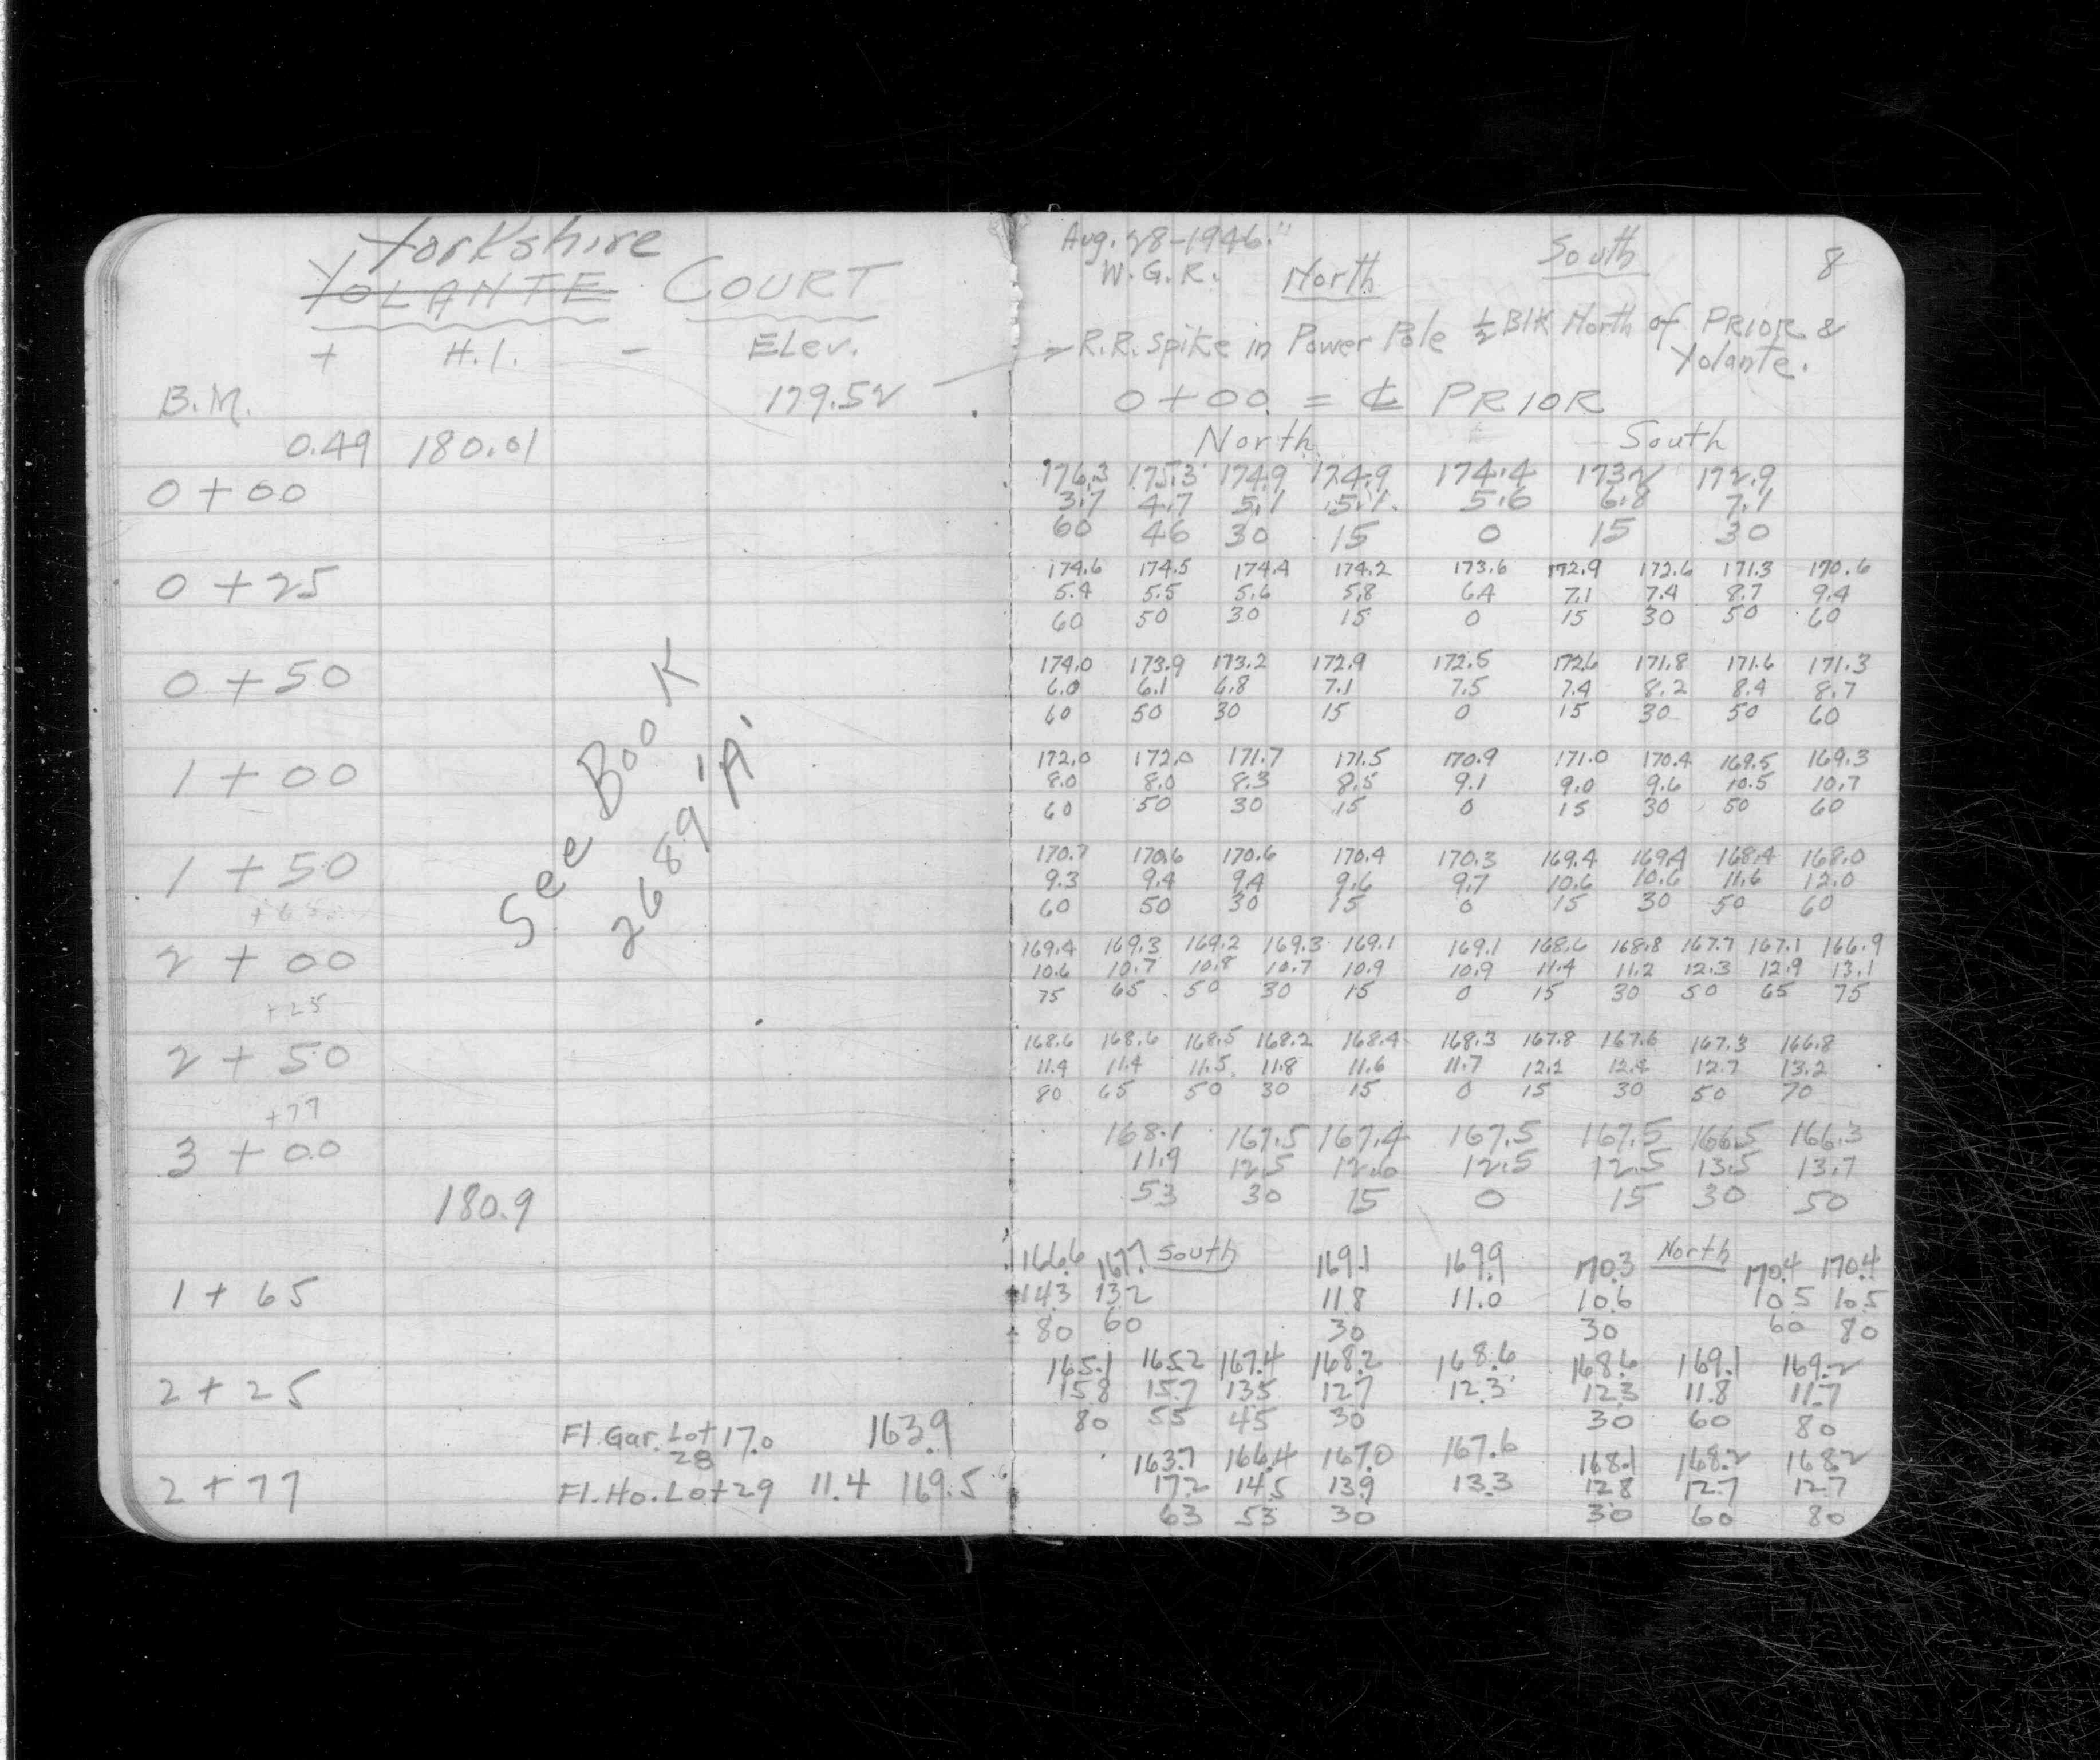 Yorkshire
YOLANTE COURT
+ H.I. - Elev.
B.M. 179.52
0.49 180.01
0+00
0+25
0+50
1+00
1+50
2+00
+25
2+50
+77
3+00
180.9
1+65
2+25
Fl. Gar. Lot 17.0 163.9
28
2+77 Fl. Ho. Lot 29 11.4 169.5
See Book
2689 'A'
Aug. 28-1946. South 8
W.G.R. North
= R.R. Spike in Power Pole ½ Blk North of PRIOR &
Yolante.
0+00 = ℄ PRIOR
North South
176.3 175.3 174.9 174.9 174.4 173.2 172.9
3.7 4.7 5.1 5.1 5.6 6.8 7.1
60 46 30 15 0 15 30
174.6 174.5 174.4 174.2 173.6 172.9 172.6 171.3 170.6
5.4 5.5 5.6 5.8 6.4 7.1 7.4 8.7 9.4
60 50 30 15 0 15 30 50 60
174.0 173.9 173.2 172.9 172.5 172.6 171.8 171.6 171.3
6.0 6.1 6.8 7.1 7.5 7.4 8.2 8.4 8.7
60 50 30 15 0 15 30 50 60
172.0 172.0 171.7 171.5 170.9 171.0 170.4 169.5 169.3
8.0 8.0 8.3 8.5 9.1 9.0 9.6 10.5 10.7
60 50 30 15 0 15 30 50 60
170.7 170.6 170.6 170.4 170.3 169.4 169.4 168.4 168.0
9.3 9.4 9.4 9.6 9.7 10.6 10.6 11.6 12.0
60 50 30 15 0 15 30 50 60
169.4 169.3 169.2 169.3 169.1 169.1 168.6 168.8 167.7 167.1 166.9
10.6 10.7 10.8 10.7 10.9 10.9 11.4 11.2 12.3 12.9 13.1
75 65 50 30 15 0 15 30 50 65 75
168.6 168.6 168.5 168.2 168.4 168.3 167.8 167.6 167.3 166.8
11.4 11.4 11.5 11.8 11.6 11.7 12.2 12.4 12.7 13.2
80 65 50 30 15 0 15 30 50 70
168.1 167.5 167.4 167.5 167.5 166.5 166.3
11.9 12.5 12.6 12.5 12.5 13.5 13.7
53 30 15 0 15 30 50
166.6 167.7 South 169.1 169.9 170.3 North 170.4 170.4
14.3 13.2 11.8 11.0 10.6 10.5 10.5
80 60 30 30 60 80
165.1 165.2 167.4 168.2 168.6 168.6 169.1 169.2
15.8 15.7 13.5 12.7 12.3 12.3 11.8 11.7
80 55 45 30 30 60 80
163.7 166.4 167.0 167.6 168.1 168.2 168.2
17.2 14.5 13.9 13.3 12.8 12.7 12.7
63 53 30 30 60 80